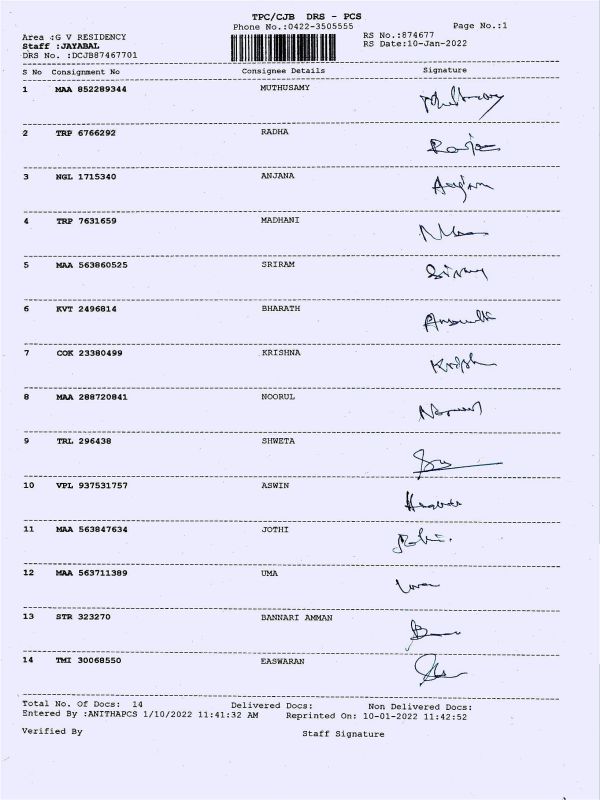 TPC/CJB DRS - PCS
Phone No.:0422-3505555 Page No.:1
Area :G V RESIDENCY RS No.:874677
Staff :JAYABAL RS Date:10-Jan-2022
DRS No. :DCJB87467701
S No Consignment No Consignee Details Signature
1 MAA 852289344 MUTHUSAMY
2 TRP 6766292 RADHA
3 NGL 1715340 ANJANA
4 TRP 7631659 MADHANI
5 MAA 563860525 SRIRAM
6 KVT 2496814 BHARATH
7 COK 23380499 KRISHNA
8 MAA 288720841 NOORUL
9 TRL 296438 SHWETA
10 VPL 937531757 ASWIN
11 MAA 563847634 JOTHI
12 MAA 563711389 UMA
13 STR 323270 BANNARI AMMAN
14 TMI 30068550 EASWARAN
Total No. Of Docs: 14 Delivered Docs: Non Delivered Docs:
Entered By :ANITHAPCS 1/10/2022 11:41:32 AM Reprinted On: 10-01-2022 11:42:52
Verified By Staff Signature